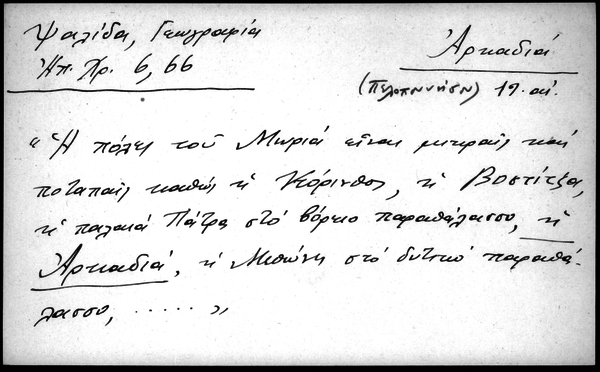 Ψαλίδα, Γεωγραφία
Ἠπ. Χρ. 6, 66
Ἀρκαδιά
(Πελοπόννησον) 19. αἰ.
"Ἡ πόλες τοῦ Μωριά εἶναι μικραῖς καί
ποταπαῖς καθώς ἡ Κόρινθος, ἡ Βοστίτζα,
ἡ παλαιά Πάτρα στό βόρειο παραθάλασσο, ἡ
Ἀρκαδιά, ἡ Μεθώνη στό δυτικό παραθά-
λασσο, ..... "